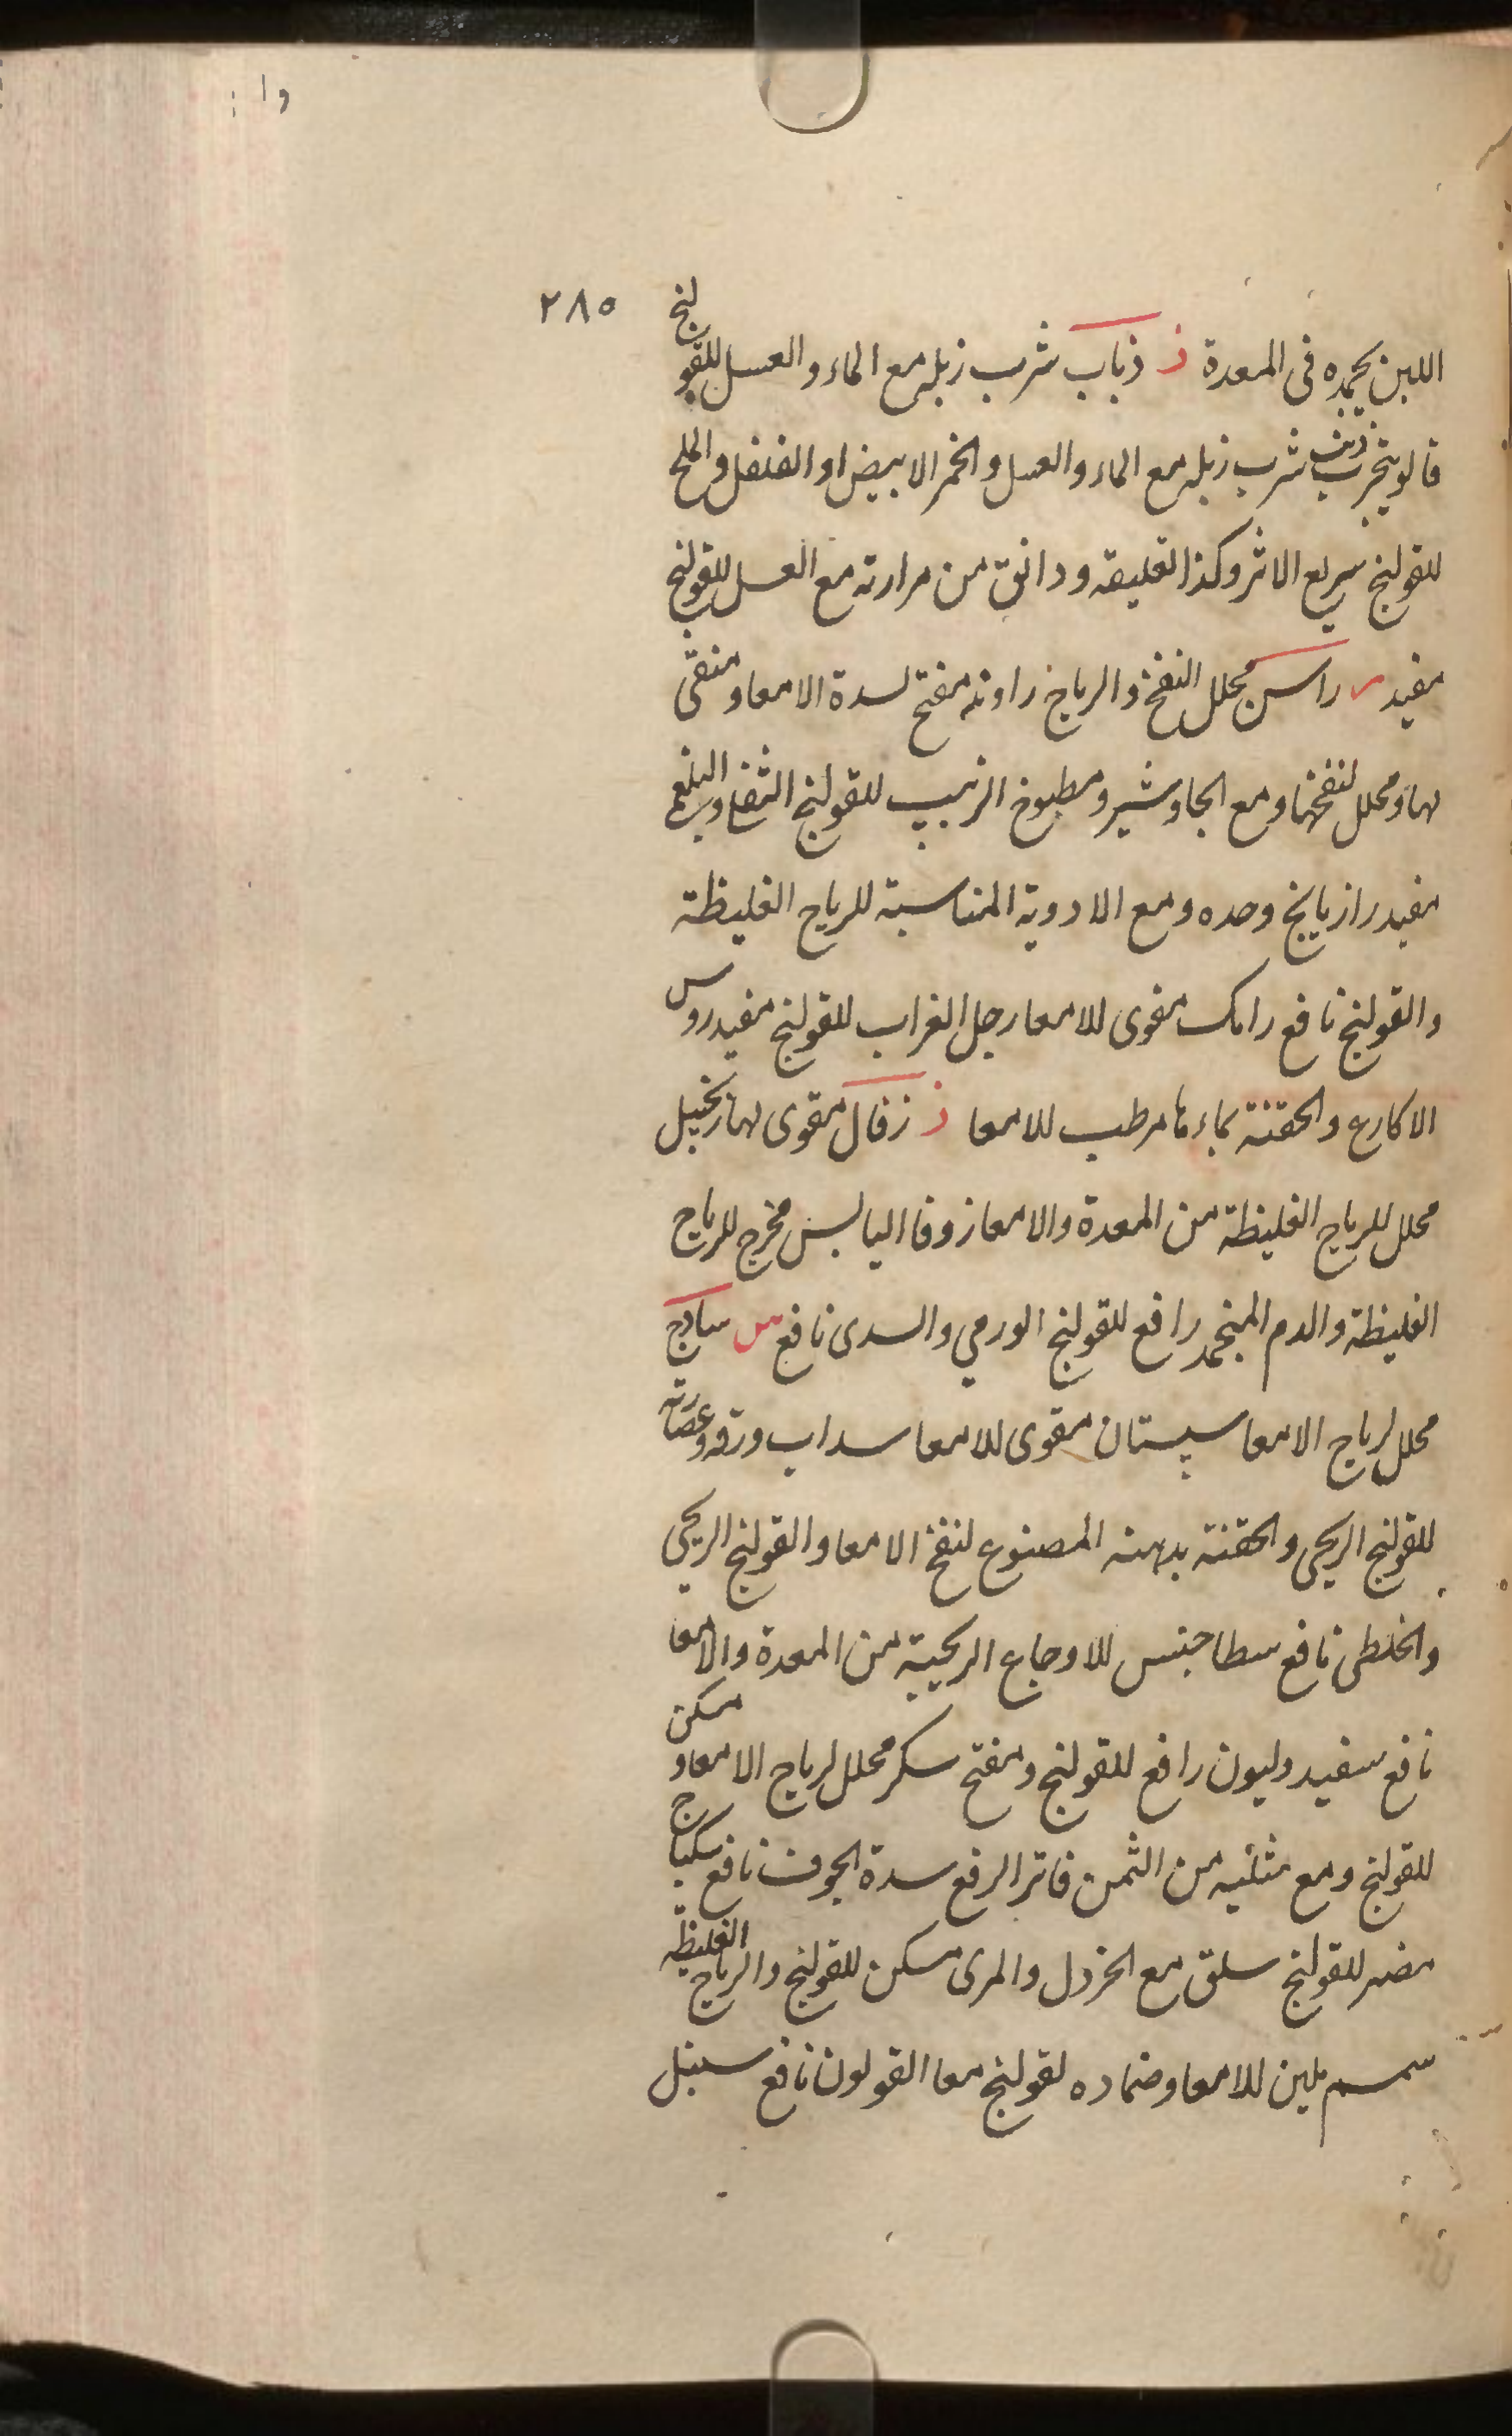 ٢٨٥
اللبن يجمده فى المعدة ذ ذباب شرب زبله مع الماء والعسل للقولنج
قالوا يجرب ذئب شرب زبله مع الماء والعسل والخمر الابيض او الفلفل والملح
للقولنج سريع الاثر وكذا تعليقه ودانق من مرارته مع العسل للقولنج
مفيد ر راسن محلل النفخ والرياح راوند مفتح لسدة الامعا ومنقى
لها ومحلل لنفخها ومع الجاوشير ومطبوخ الزبيب للقولنج الثفلى والبلغمى
مفيد رازيانج وحده ومع الادوية المناسبة للرياح الغليظة
والقولنج نافع رامك مقوى للامعا رجل الغراب للقولنج مفيد روس
الاكارع والحقنة بماءها مرطب للامعا ز زفال مقوى لها زنجبيل
محلل للرياح الغليظة من المعدة والامعا زوفا اليابس مخرج للرياح
الغليظة والدم المنجمد رافع للقولنج الورمي والسدى نافع س ساذج
محلل لرياح الامعا سپستان مقوى للامعا سداب ورقه وعصارته
للقولنج الريحى والحقنة بدهنه المصنوع لنفخ الامعا والقولنج الريحى
والخلطى نافع سطاجنس للاوجاع الريحية من المعدة والامعا
نافع سفيدوليون رافع للقولنج ومفتح سكر محلل لرياح الامعا ومسكن
للقولنج ومع مثليه من الثمن فاترا لرفع سدة الجوف نافع سكباج
مضر للقولنج سلق مع الخردل والمرى مسكن للقولنج والرياح الغليظة
سمسم ملين للامعا وضماده لقولنج معا القولون نافع سنبل